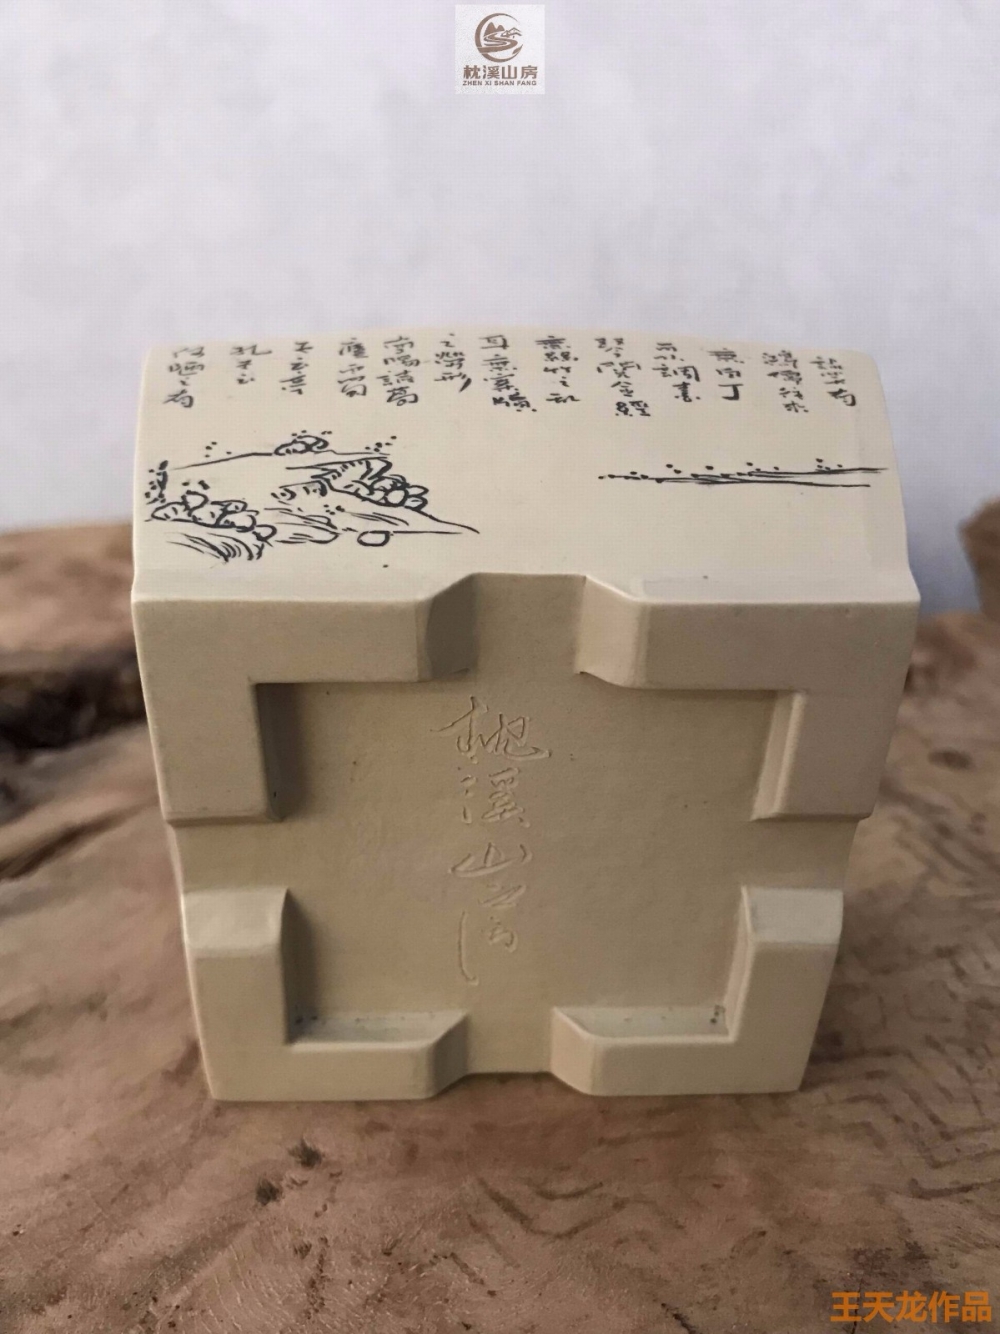 枕溪山房
ZHEN XI SHAN FANG
談笑有
鴻儒往来
無白丁
可以調素
琴閱金經
無絲竹之亂
耳無案牘
之勞形
南陽諸葛
廬西蜀
子雲亭
孔子云
何陋之有
枕溪山房
王天龙作品